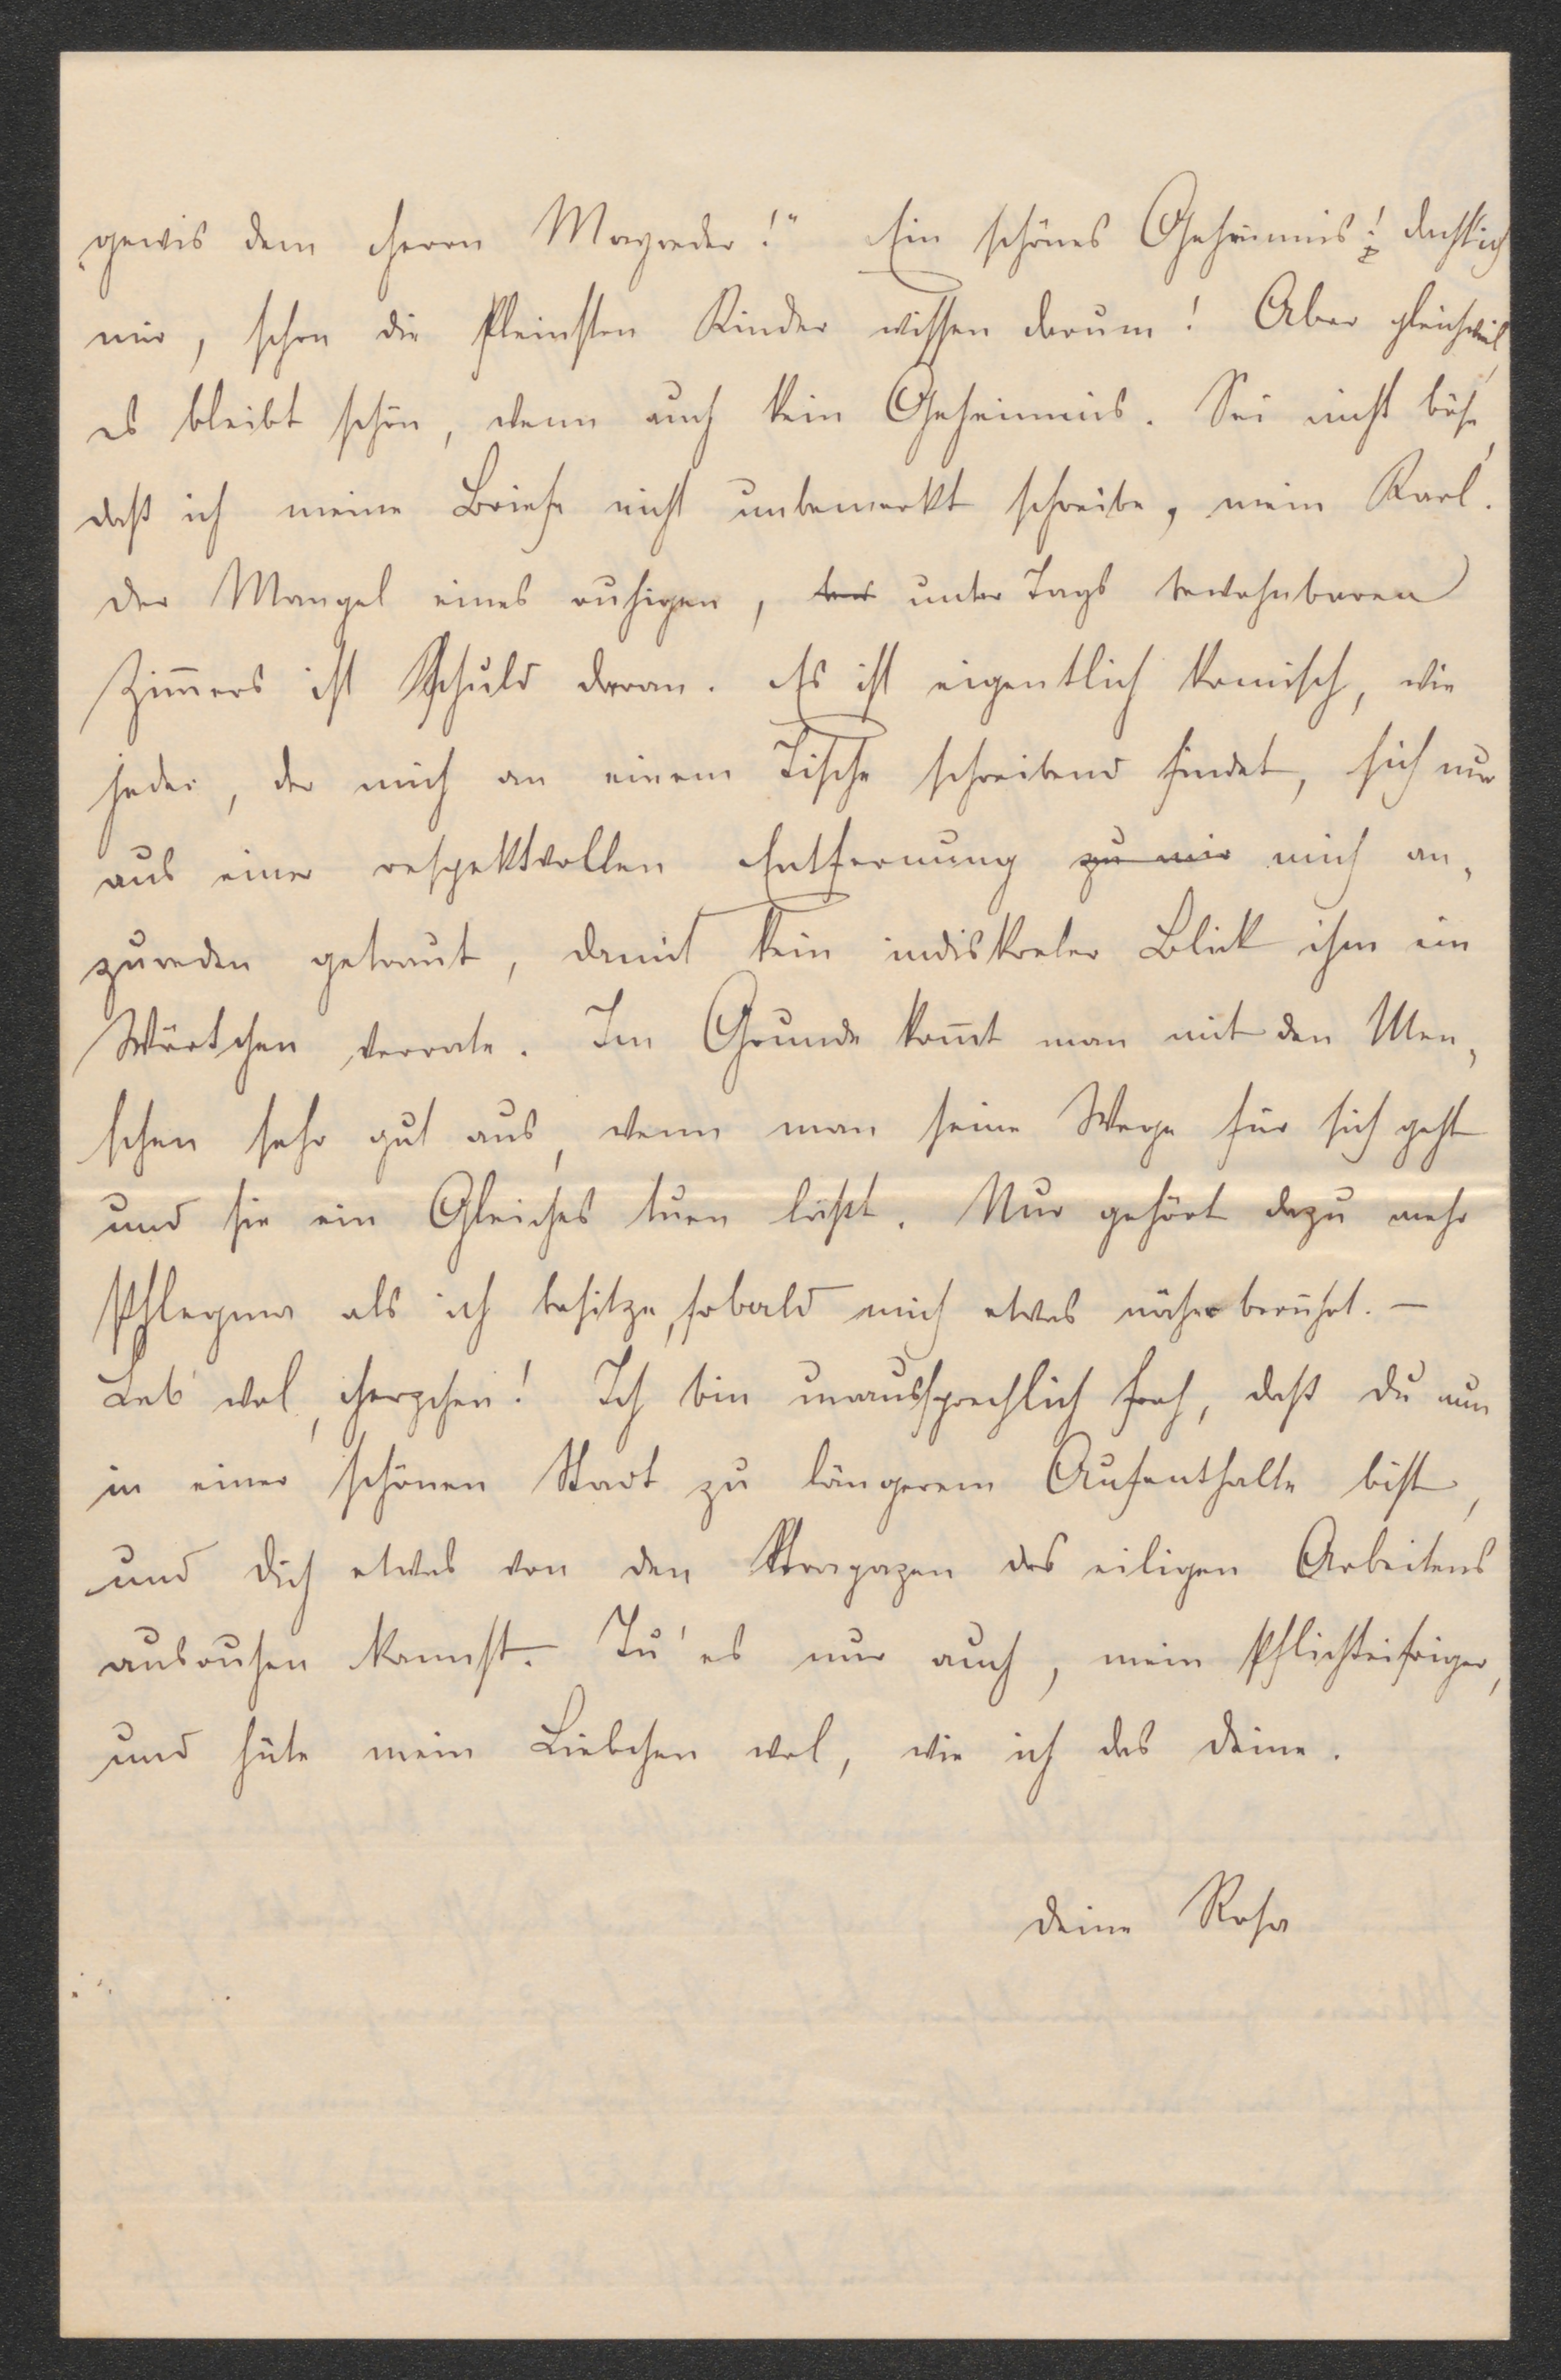 „gewis dem Herrn Mayreder!“ Ein schönes Geheimnis! dacht ich
mir, schon die kleinsten Kinder wissen darum! Aber gleichviel,
es bleibt schön, wenn auch kein Geheimnis. Sei nicht böse,
daß ich meine Briefe nicht unbemerkt schreibe, mein Karl.
Der Mangel eines ruhigen, unter Tags bewohnbaren
Zim̄ers ist Schuld daran. Es ist eigentlich komisch, wie
jeder, der mich an einem Tische schreibend findet, sich nur
aus einer respektvollen Entfernung zu mir mich an-
zureden getraut, damit kein indiskreter Blick ihm ein
Wörtchen verrate. Im Grunde kom̄t man mit den Men-
schen sehr gut aus, wenn man seine Wege für sich geht
und sie ein Gleiches tuen läßt. Nur gehört dazu mehr
Phlegma als ich besitze, sobald mich etwas näher berührt. –
Leb' wol, Herzchen! Ich bin unaussprechlich froh, daß Du nun
in einer schönen Stadt zu längerem Aufenthalte bist,
und Dich etwas von den Strapazen des eiligen Arbeitens
ausruhen kannst. Tu' es nur auch, mein Pflichteifriger,
und hüte mein Liebchen wol, wie ich das Deine.
Deine Rosa